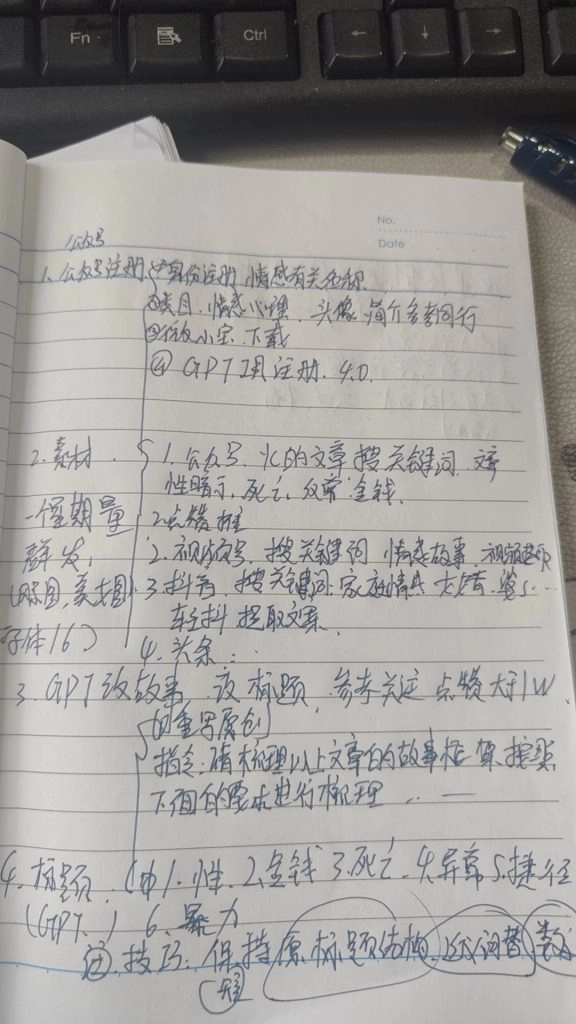 Fn
Ctrl
No.
Date
公众号
1、公众号注册 ①身份注册 情感有关名称
②类目、情感心理、头像 简介参考同行
③ 小宝 下载
④ GPT 注册、4.0
2、素材 1、公众号、 的文章 搜关键词
性暗示、死亡、 金钱、
一个星期量 2、点赞
群发、 2、视频号、搜关键词 情感故事、
( 图、美女图) 3、抖音、搜关键词、家庭情
字体16) 轻抖 提取文案、
4、头条、
3、GPT改故事 改标题、参考关注 点赞大于1W、
重写原创
指令:请梳理以上文章的故事框架,按照
下面的要求进行梳理
4、标题、 1、性、2、金钱 3、死亡、4、异常 5、捷径
(GPT、) 6、暴力
技巧: 保持原标题结构、 词替